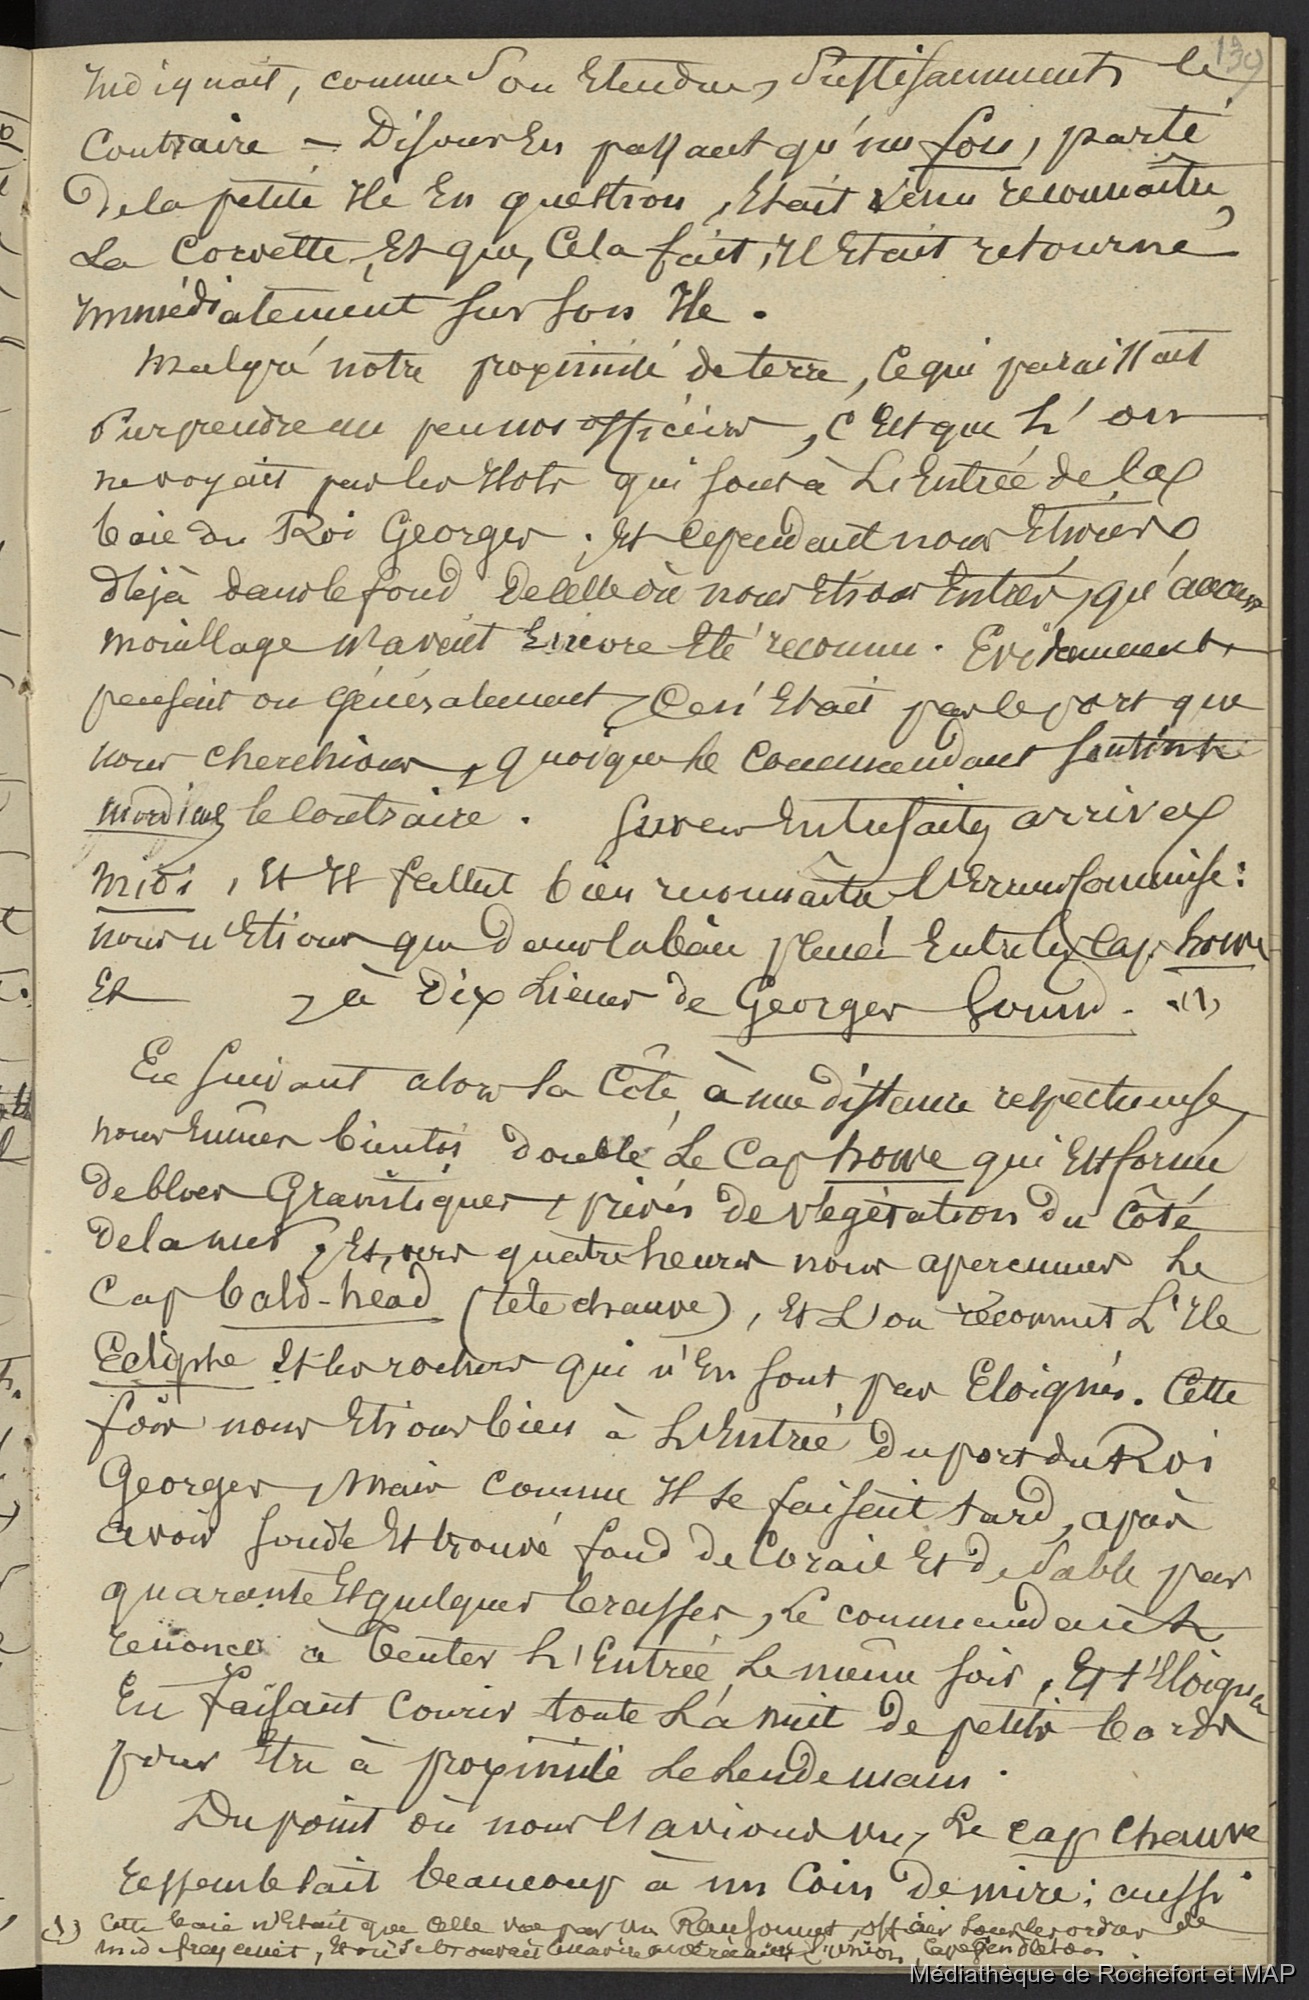 139
Indiquait, comme Son Etendue, Suffisamment le
Contraire — Disons En passant qu'un fou, parti
de la petite Ile En question, Etait venu reconnaître
La Corvette, Et que, Cela fait, Il Etait retourné
Immédiatement Sur Son Ile.
Malgré notre proximité de terre, Ce qui paraissait
Surprendre un peu nos officiers, C'Est que L'on
ne voyait pas les Ilots qui sont à L'Entrée de la
baie du Roi Georges ; Et Cependant nous Etions
déjà dans le fond de Celle où nous Etions Entrés, qu'aucun
mouillage n'avait Encore Eté reconnu. Evidemment,
pensait on généralement, Ce n'Etait pas le port que
nous cherchions, quoique le Commandant Soutint
mordicus le Contraire. Sur ces Entrefaites arriva
midi, Et Il fallut bien reconnaître l'Erreur Commise :
nous n'Etions que dans la baie placée Entre les Cap howe
Et , à Dix Lieues de Georges Sound. (1)
En Suivant alors la Côte, à une distance respectueuse,
nous Eumes bientôt doublé Le Cap howe qui Est formé
de blocs Granitiques, privés de végétation du Côté
de la mer, Et, vers quatre heures nous aperçumes Le
Cap bald-head (tête chauve), Et L'on reconnut L'Ile
Eclipse Et les rochers qui n'En sont pas Eloignés. Cette
fois nous Etions bien à L'Entrée du port du Roi
Georges, mais Comme Il se faisait tard, après
avoir sondé Et trouvé fond de Corail Et de Sable par
quarante Et quelques brasses, Le commandant
renonça à tenter L'Entrée Le même soir, Et s'Eloigna
En faisant Courir toute La nuit de petits bords
pour Etre à proximité Le Lendemain.
Du point où nous l'avions vu, Le Cap Chauve
ressemblait beaucoup à un Coin de mire ; aussi
(1) Cette baie n'Etait que Celle vue par Mr Ransonnet, officier sous les ordres de
Mr de freycinet, Et où se trouvait le navire américain L'Union, Cape Pendleton.
Médiathèque de Rochefort et MAP